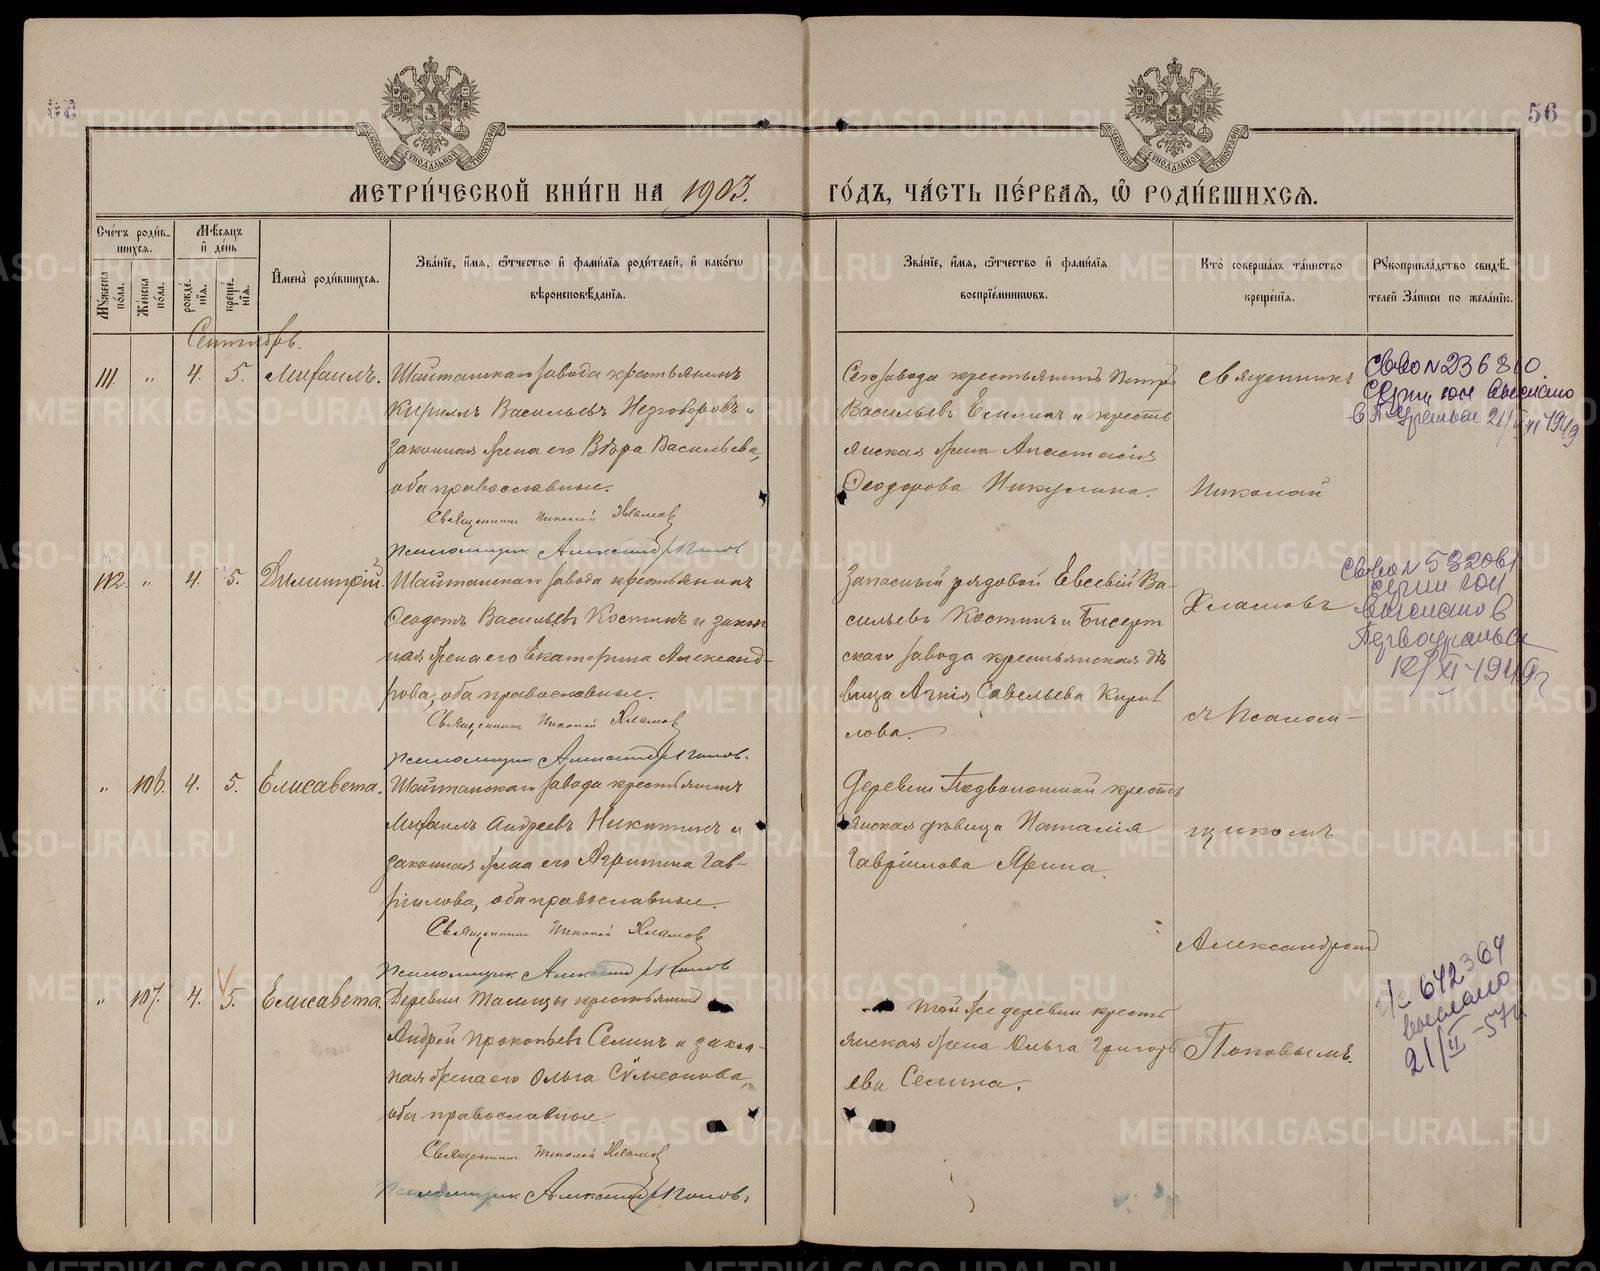 56
МОСКОВСКОЙ СѴНОДАЛЬНОЙ ТИПОГРАФІИ
МОСКОВСКОЙ СѴНОДАЛЬНОЙ ТИПОГРАФІИ
МЕТРИ́ЧЕСКОЙ КНИ́ГИ НА 1903.
ГО́ДЪ, ЧА́СТЬ ПЕ́РВАѦ, Ѡ҆ РОДИ́ВШИХСѦ.
Сче́тъ роди́в-
шихсѧ.
Мꙋ́жеска по́ла.
Же́нска по́ла.
Мѣ́сѧцъ
и҆ де́нь
рожде́-
нїѧ.
креще́-
нїѧ.
И҆мена̀ роди́вшихсѧ.
Зва́нїе, и҆́мѧ, ѻ҆́тчество и҆ фами́лїѧ роди́телей, и҆ како́гѡ
вѣроисповѣ́данїѧ.
Зва́нїе, и҆́мѧ, ѻ҆́тчество и҆ фами́лїѧ
воспрїе́мникѡвъ.
Кто̀ соверша́лъ та́инство
креще́нїѧ.
Рꙋкоприкла́дство свидѣ́-
телей За́писи по жела́нїю.
Сентябрь.
111. " 4. 5. Михаилъ.
Шайтанскаго завода крестьянинъ
Кириллъ Васильевъ Незговоровъ и
законная жена его Вѣра Васильева,
оба православные.
Священникъ Николай Хламовъ
Псаломщикъ Александръ Поповъ
Сего завода крестьянинъ Петръ
Васильевъ и кресть
янская жена Анастасія
Ѳеодорова Никулина.
Священникъ
Николай
Св-во № 236810.
серии выслано
в П-Уральск 21/XII 1949
112. " 4. 5. Димитрій.
Шайтанскаго завода крестьянинъ
Ѳеодотъ Васильевъ Костинъ и закон
ная жена его Екатерина Александ-
рова, оба православные.
Священникъ Николай Хламовъ
Псаломщикъ Александръ Поповъ.
Запасный рядовой Евсевій Ва-
сильевъ Костинъ и Бисерт
скаго завода крестьянская дѣ
вица Агнія Савельева Кирил
лова.
Хламовъ
съ Псалом-
Св-во №
серии
выслано в
Первоуральск
12/XI-1949г
" 106. 4. 5. Елисавета.
Шайтанскаго завода крестьянинъ
Михаилъ Андреевъ Никитинъ и
законная жена его Агрипина Гав-
ріилова, оба православные.
Священникъ Николай Хламовъ
Псаломщикъ Александръ Поповъ
Деревни Подволошной кресть
янская дѣвица Наталія
Гавріилова Ярина.
щикомъ
Александромъ
" 107. 4. 5. Елисавета.
Деревни Талицы крестьянинъ
Андрей Прокопьевъ Селинъ и закон-
ная жена его Ольга Сѵмеонова,
оба православные.
Священникъ Николай Хламовъ
Псаломщикъ Александръ Поповъ.
Той же деревни кресть
янская жена Ольга Григорь
ева Селина.
Поповымъ.
642364
выслано
21/II-57г.
METRIKI.GASO-URAL.RU